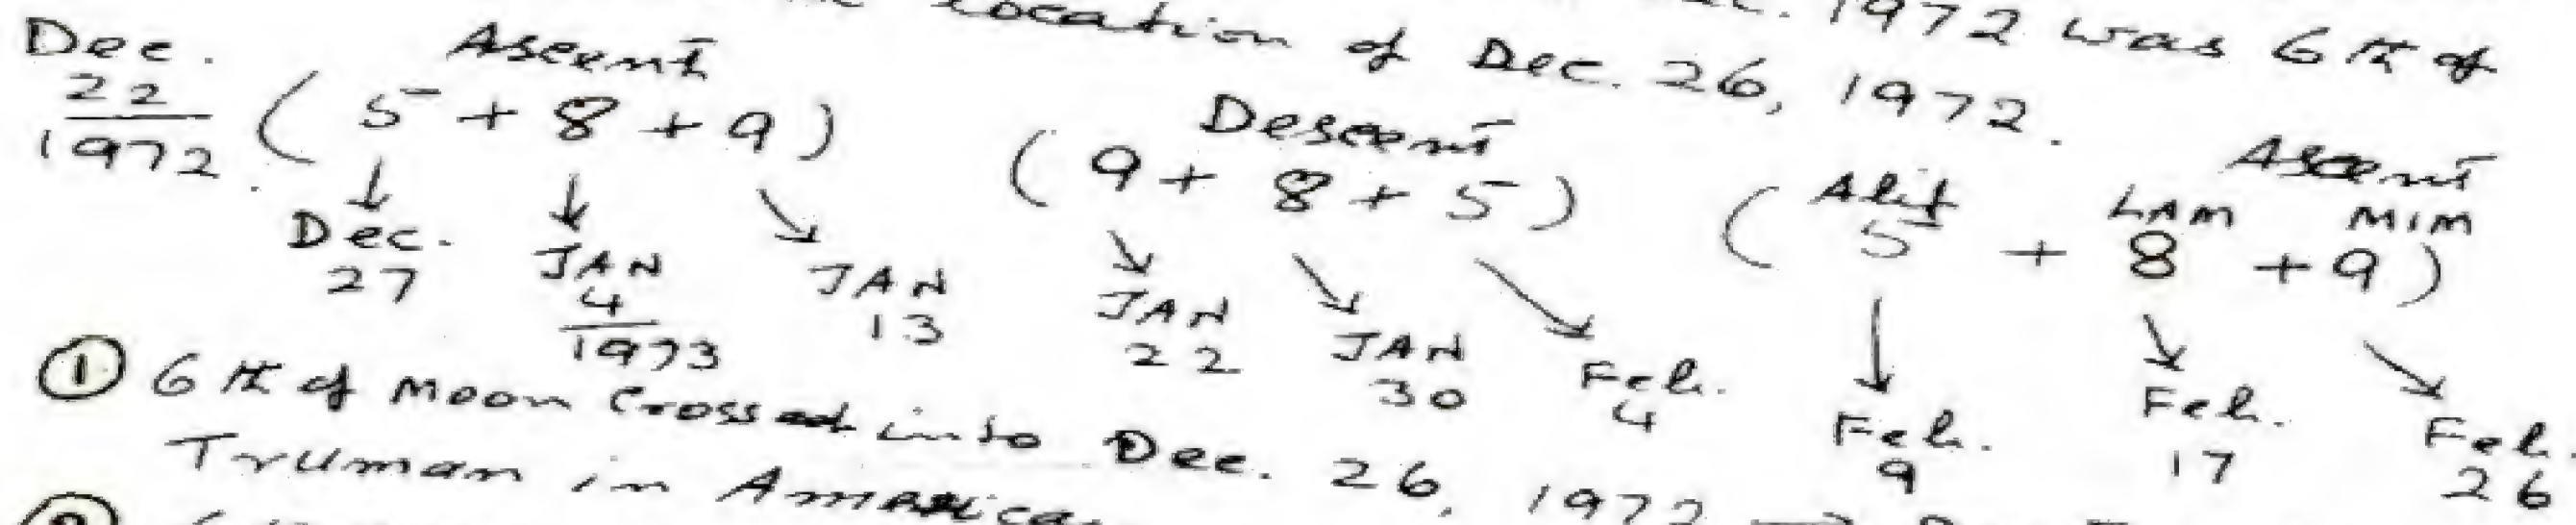 location of Dec. 26, 1972.
1972 was 6th of
Dec. 22/1972. Ascent (5 + 8 + 9)
Descent (9 + 8 + 5)
Ascent (Alif 5 + LAM 8 + MIM 9)
Dec. 27 JAN 4/1973 JAN 13
JAN 22 JAN 30 Feb. 4
Feb. 9 Feb. 17 Feb. 26
① 6th of Moon Crossed into Dec. 26, 1972
Truman in America